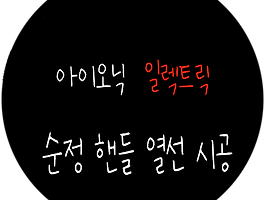 아이오닉 일렉트릭
순정 핸들 열선 시공